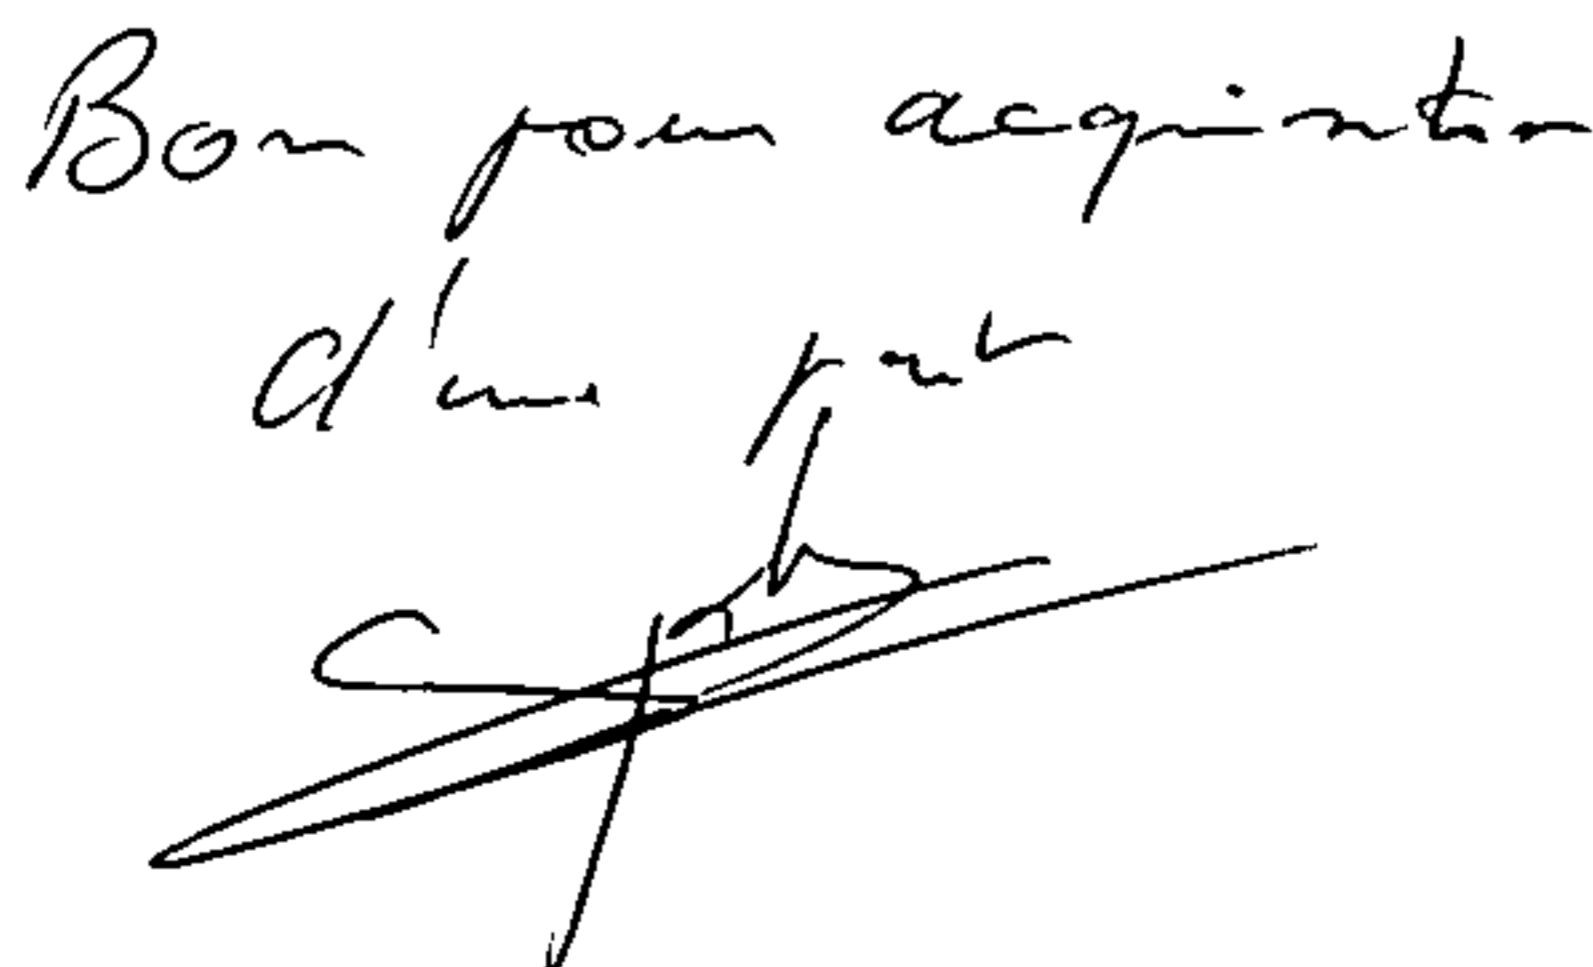 Bon pour acquisition
d'une part